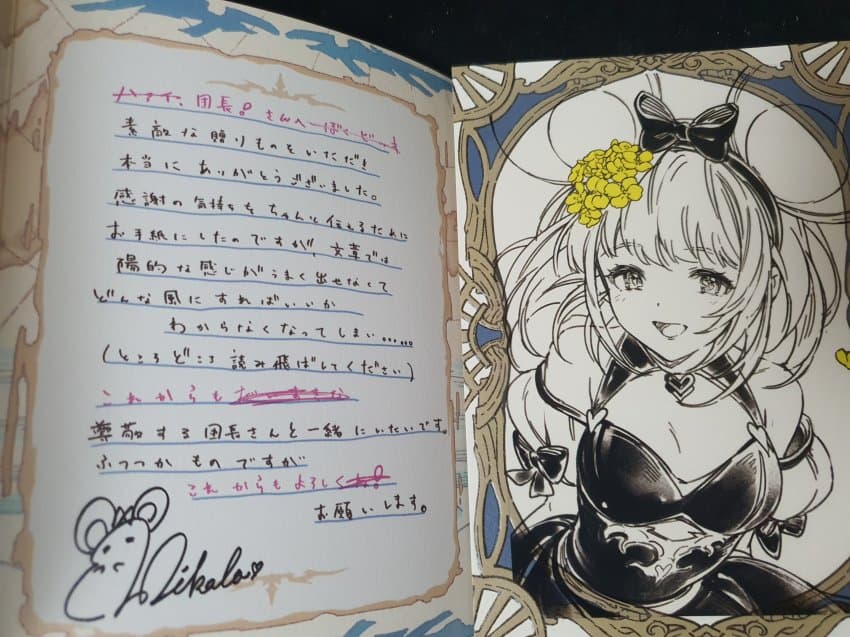 ハァイ、団長♂さんへーぼくビーま
素敵な贈りものをいただき
本当にありがとうございました。
感謝の気持ちをちゃんと伝えるために
お手紙にしたのですが、文章では
陽的な感じがうまく出せなくて
どんな風にすればいいか
わからなくなってしまい……
(ところどころ読み飛ばしてください)
これからも
尊敬する団長さんと一緒にいたいです。
ふつつかものですが
これからもよろしくね!
お願いします。
Nikala♡